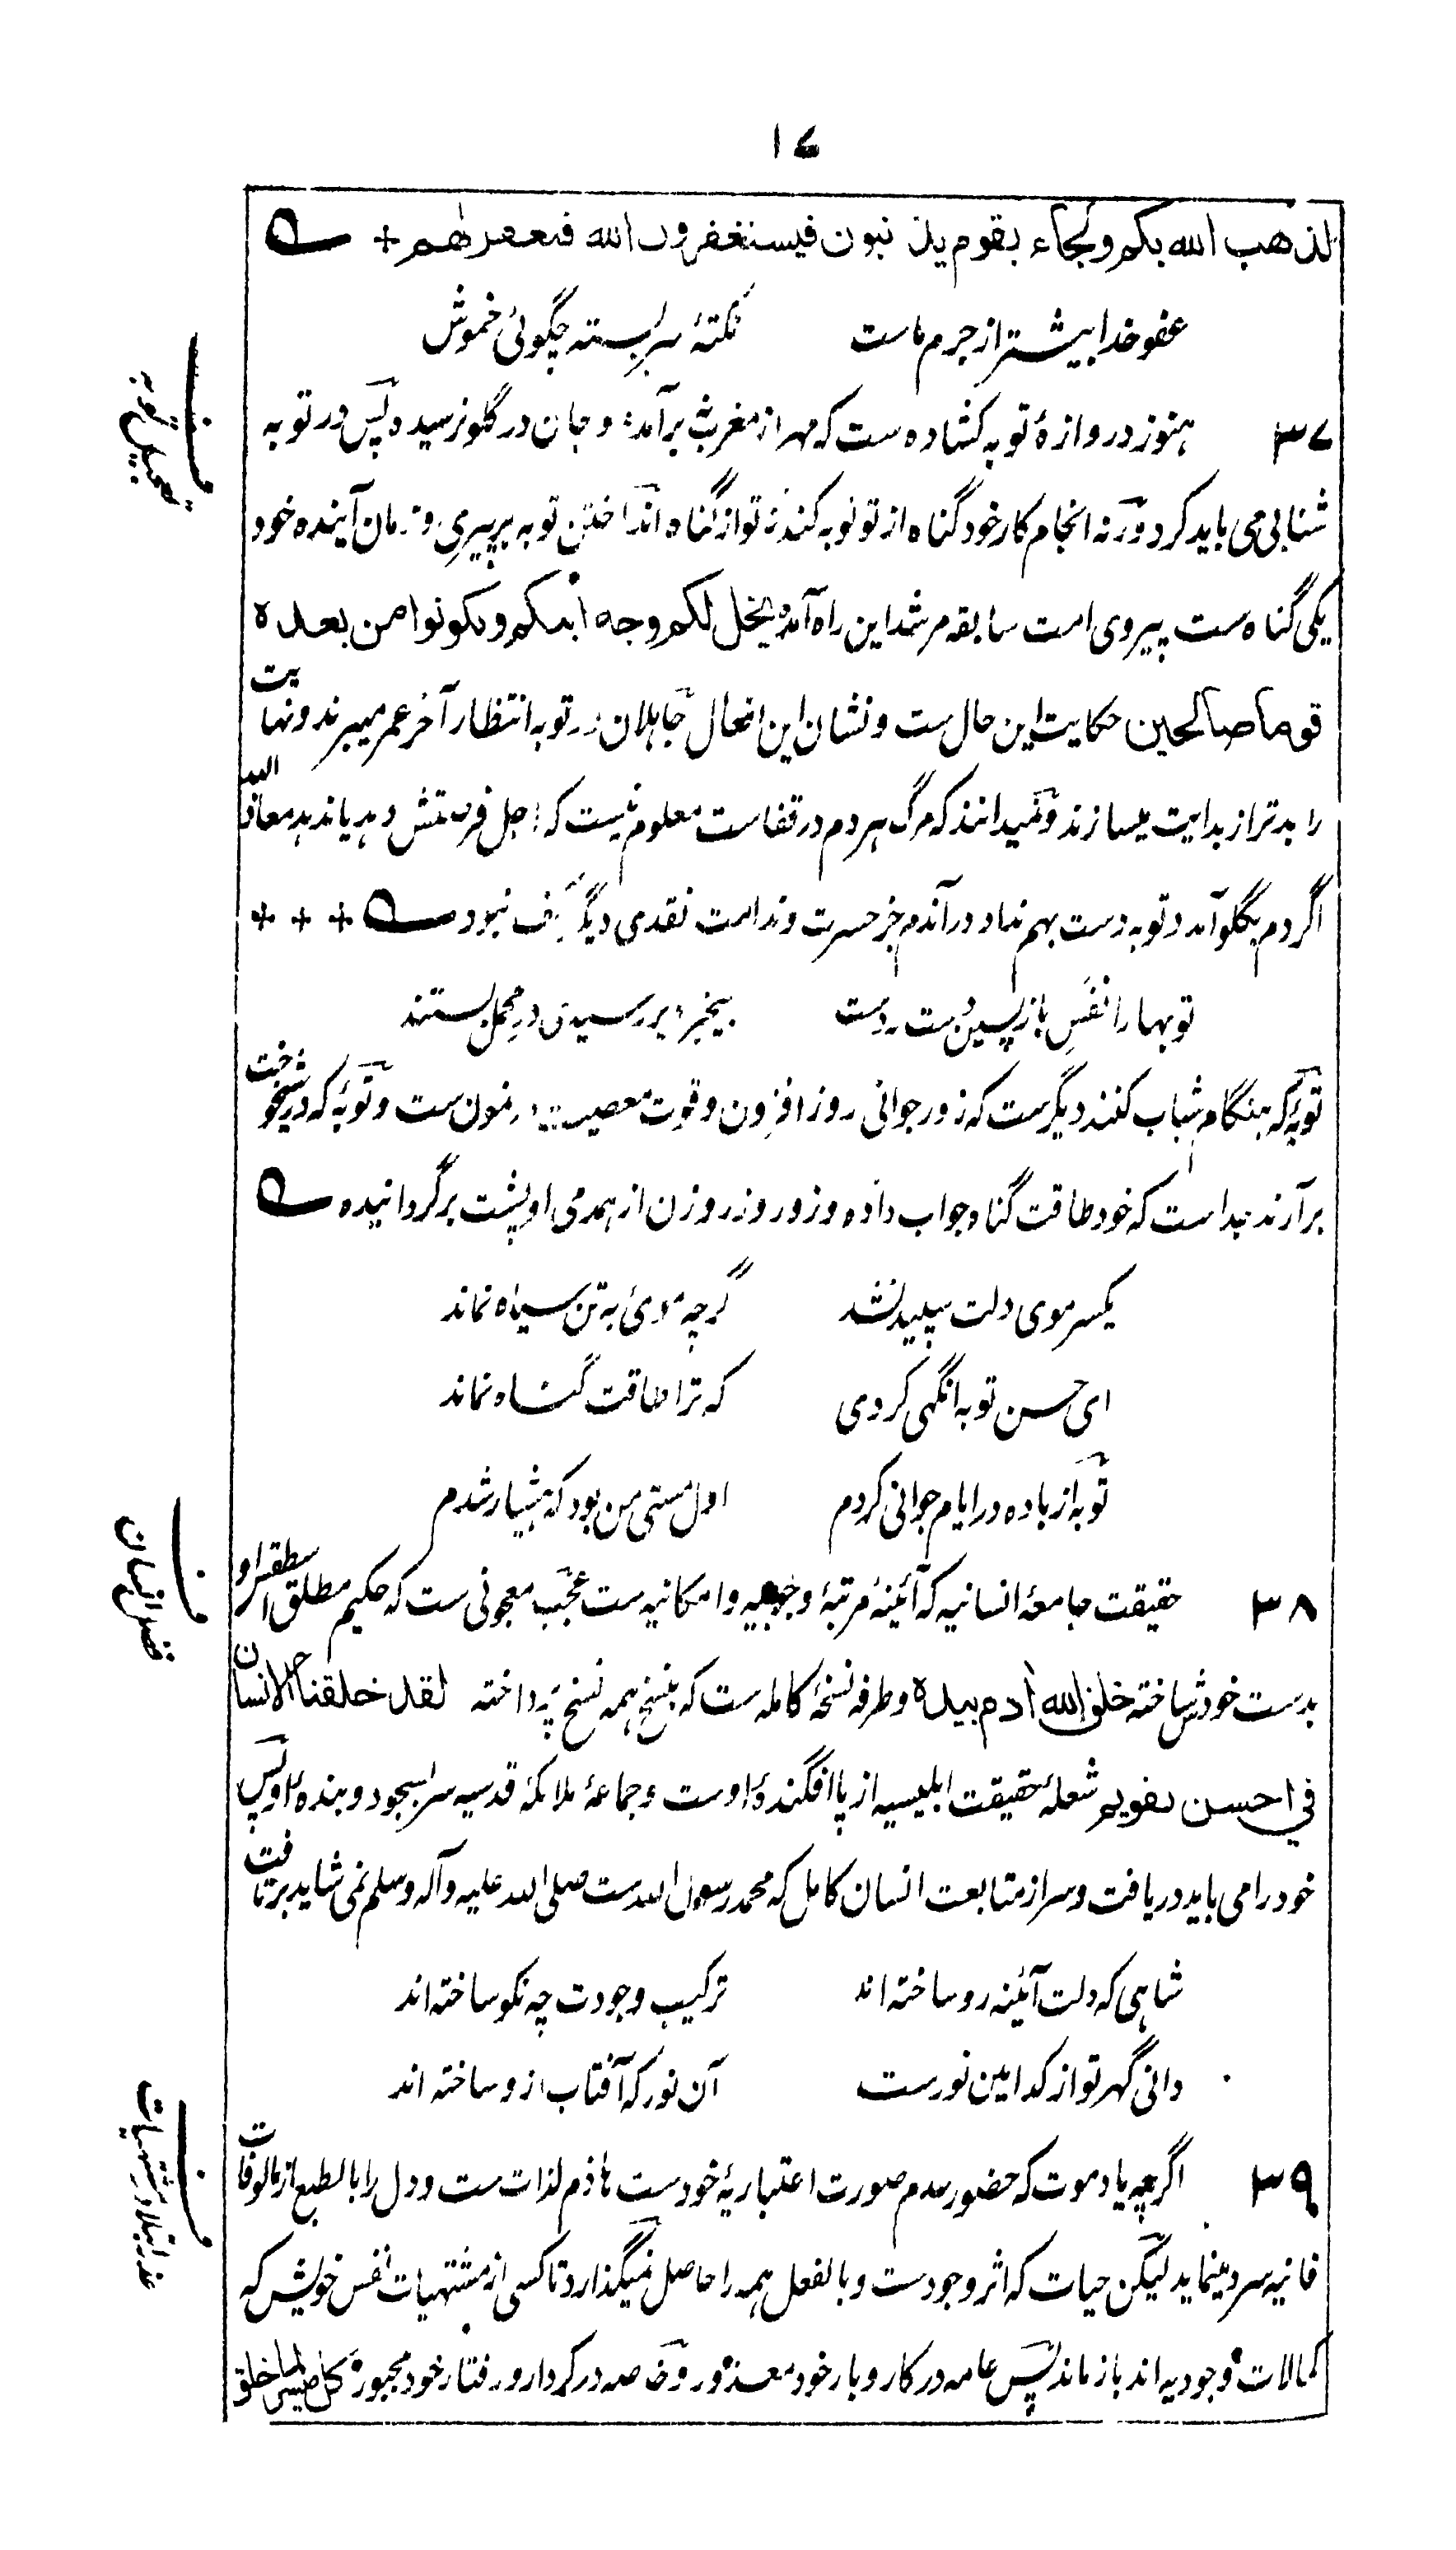 ۱۷
لذهب الله بکم ولجاء بقوم یذنبون فیستغفرون الله فیغفر لهم +
عفو خدا بیشتر از جرم ماست نکتهٔ سربسته چگوئی خموش
۳۷ هنوز دروازهٔ توبه کشاده ست که مهر از مغرب برآمده و جان در گلو نرسیده پس در توبه
شتابی می باید کرد ورنه انجام کار خود گناه از تو توبه کند نه تو از گناه انداختن توبه بر پیری و زمان آینده خود
یکی گناه ست پیروی امت سابقه مرشد این راه آمده یخل لکم وجه ابیکم وتکونوا من بعده
قوما صالحین حکایت این حال ست و نشان این جاهلان در توبه انتظار آخر عمر میبرند و نهایت
را بدتر از بدایت میسازند و نمیدانند که مرگ هر دم در قفاست معلوم نیست که اجل فرصتش دهد یا ندهد معاذ الله
اگر دم بگلو آمد و توبه دست بهم نداد در آندم جز حسرت و ندامت نقدی دیگر بکف نبود + + +
توبها را نفس بازپسین دست ردست بیخبر دیر رسیدی در محمل بستند
توبهٔ که هنگام شباب کنند دیگرست که زور جوانی روز افزون و قوت معصیت رهنمون ست و توبهٔ که در شیخوخت
برآرند پیداست که خود طاقت گناه جواب داده و زور و زر و زن از همدمی او پشت برگردانیده
یکسر موی دلت سپید نشد گرچه موئی به تن سیاه نماند
ای حسن توبه آنگهی کردی که ترا طاقت گناه نماند
توبه از باده در ایام جوانی کردم اول مستی من بود که هشیار شدم
۳۸ حقیقت جامعهٔ انسانیه که آئینهٔ مرتبهٔ وجوبیه و امکانیه ست عجب معجونی ست که حکیم مطلق
بدست خودش ساخته خلق الله آدم بیده و طرفه نسخهٔ کامله ست که بنسخ همه نسخ پرداخته لقد خلقنا الانسان
فی احسن تقویم شعلهٔ حقیقت ابلیسیه از پا افگندهٔ اوست و جماعهٔ ملائکهٔ قدسیه سر بسجود و بندهٔ او پس
خود را می باید دریافت و سر از متابعت انسان کامل که محمد رسول الله ست صلی الله علیه وآله وسلم نمی شاید برتافت
شاهی که دلت آئینه رو ساخته اند ترکیب وجودت چه نکو ساخته اند
دانی گهر تو از کدامین نورست آن نور که آفتاب ازو ساخته اند
۳۹ اگرچه یاد موت که حضور عدم صورت اعتباریهٔ خودست هاذم لذات ست و دل را بالطبع از مالوفات
فانیه سرد مینماید لیکن حیات که اثر وجودست و بالفعل همه را حاصل نمیگذارد تا کسی از مشتهیات نفس خویش که
کمالات وجودیه اند باز ماند پس عامه در کار و بار خود معذور و خاصه در کردار و رفتار خود مجبور کل میسر لما خلق
ف تعجیل توبه
ف فضل انسان
ف عذر ابتلا در مشتهیات